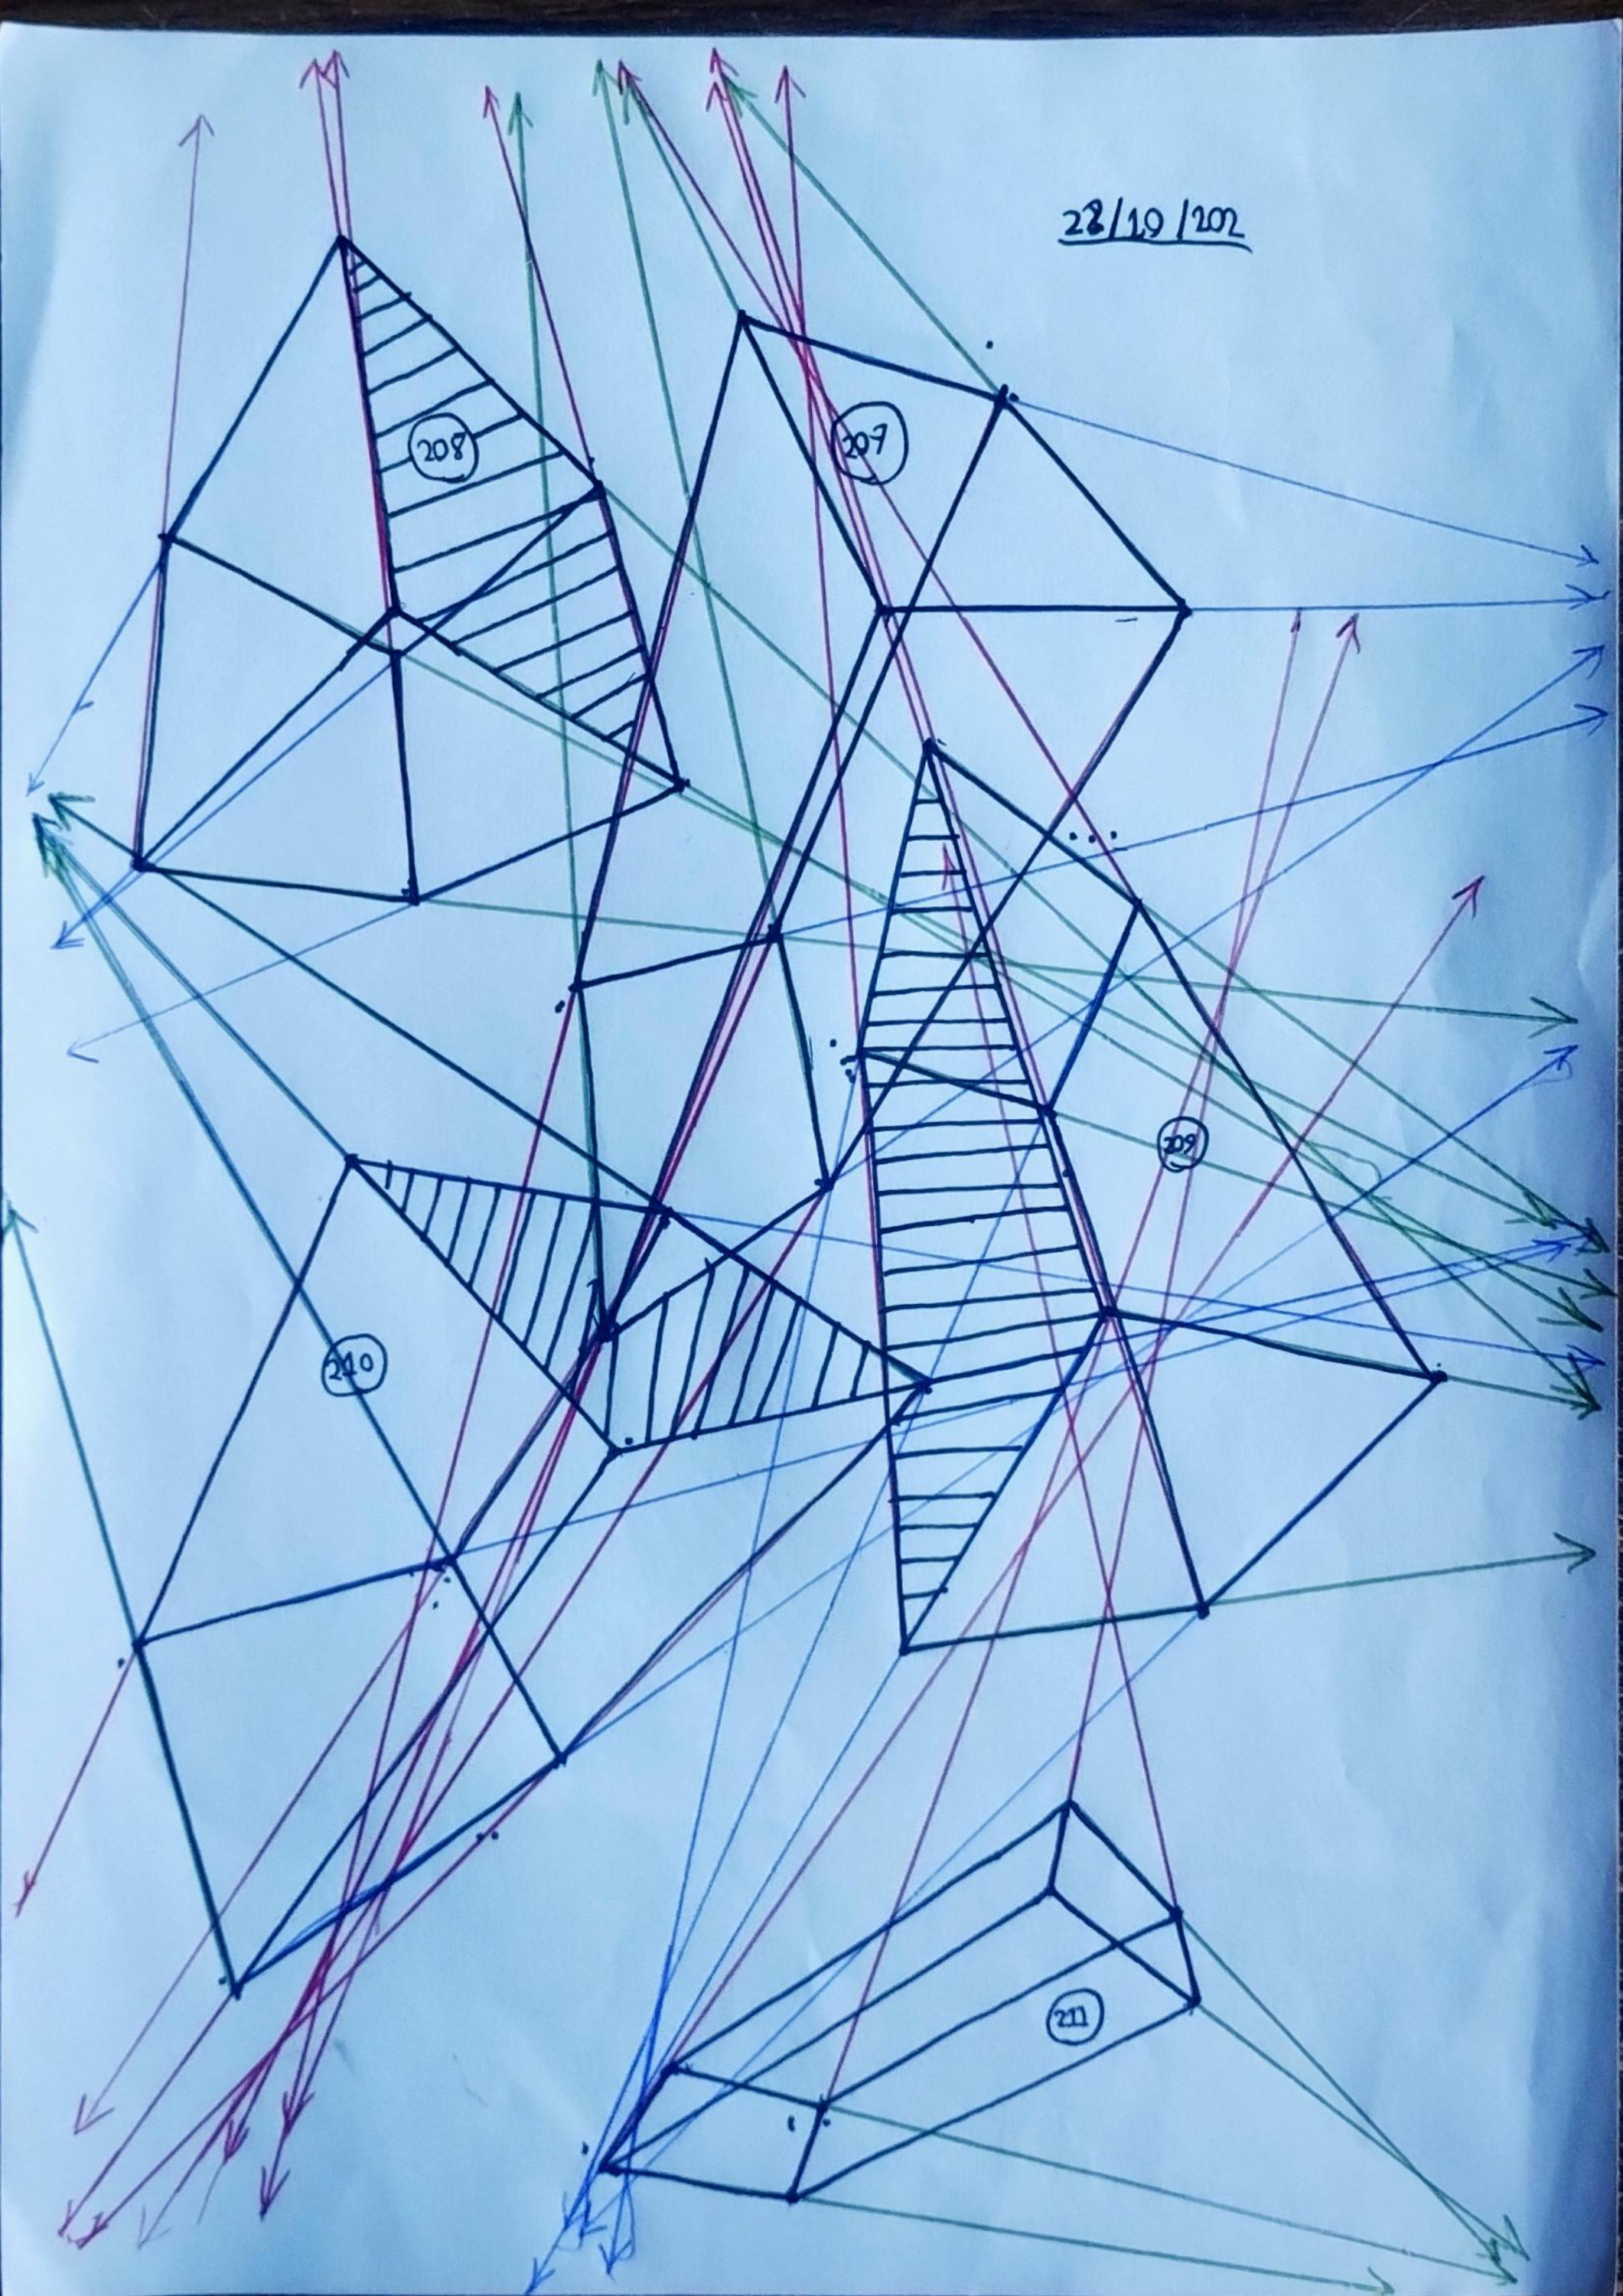 28/10/202
208
207
209
210
211